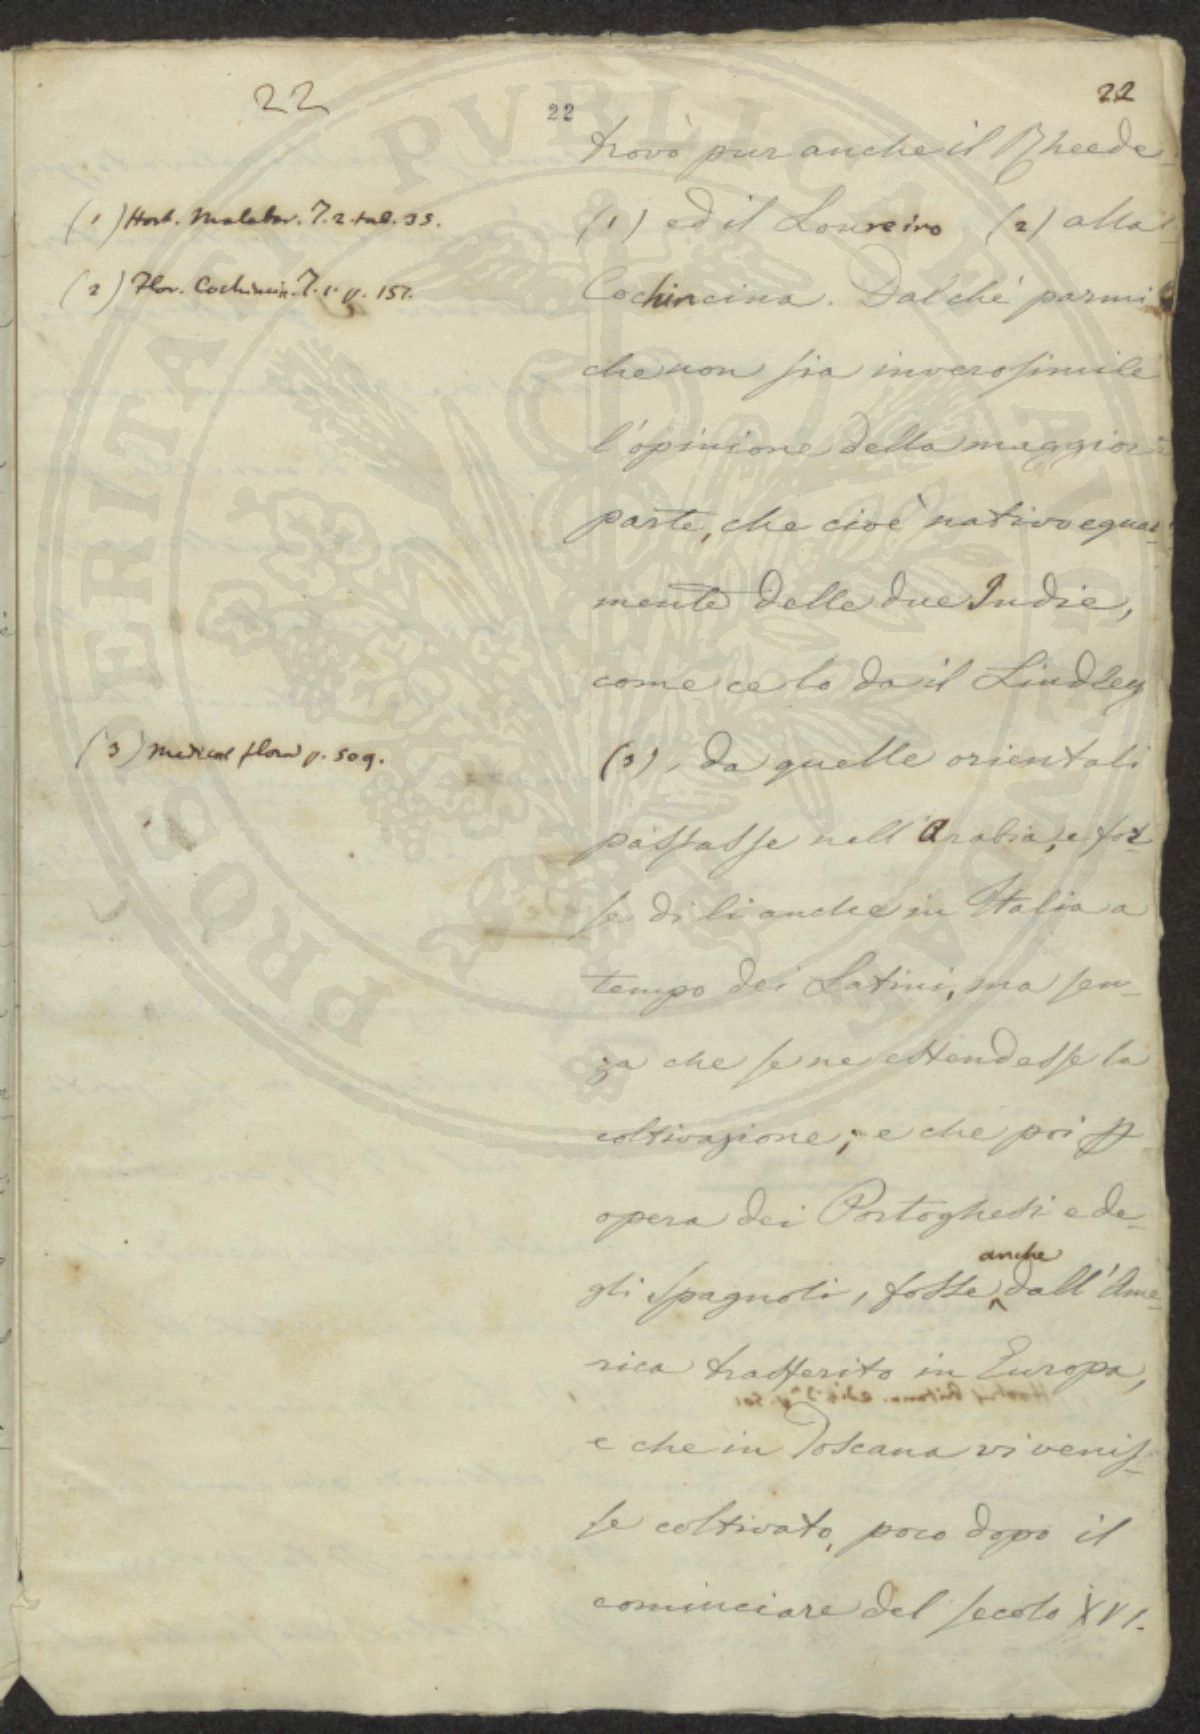 22
22
22
trovò pur anche il Rheede
(1) Hort. Malabar. T. 2. tab. 35.
(1) ed il Loureiro (2) alla
(2) Flor. Cochinin. T. 1. p. 157.
Cochincina. Dal chè parmi
che non sia inverosimile
l'opinione della maggior
parte, che cioè nativo egual-
mente delle due Indie,
come ce lo da il Lindley
(3) Medical flora p. 509.
(3), da quelle orientali
passasse nell'Arabia, e for-
se di li anche in Italia a
tempo dei Latini, ma sen-
za che se ne estendesse la
coltivazione; e che poi p
opera dei Portoghesi e de-
anche
gli Spagnoli, fosse dall'Ame-
rica trasferito in Europa,
e che in Toscana vi venis-
se coltivato, poco dopo il
cominciare del secolo XVI.
PROSPERITAS PVBLICA